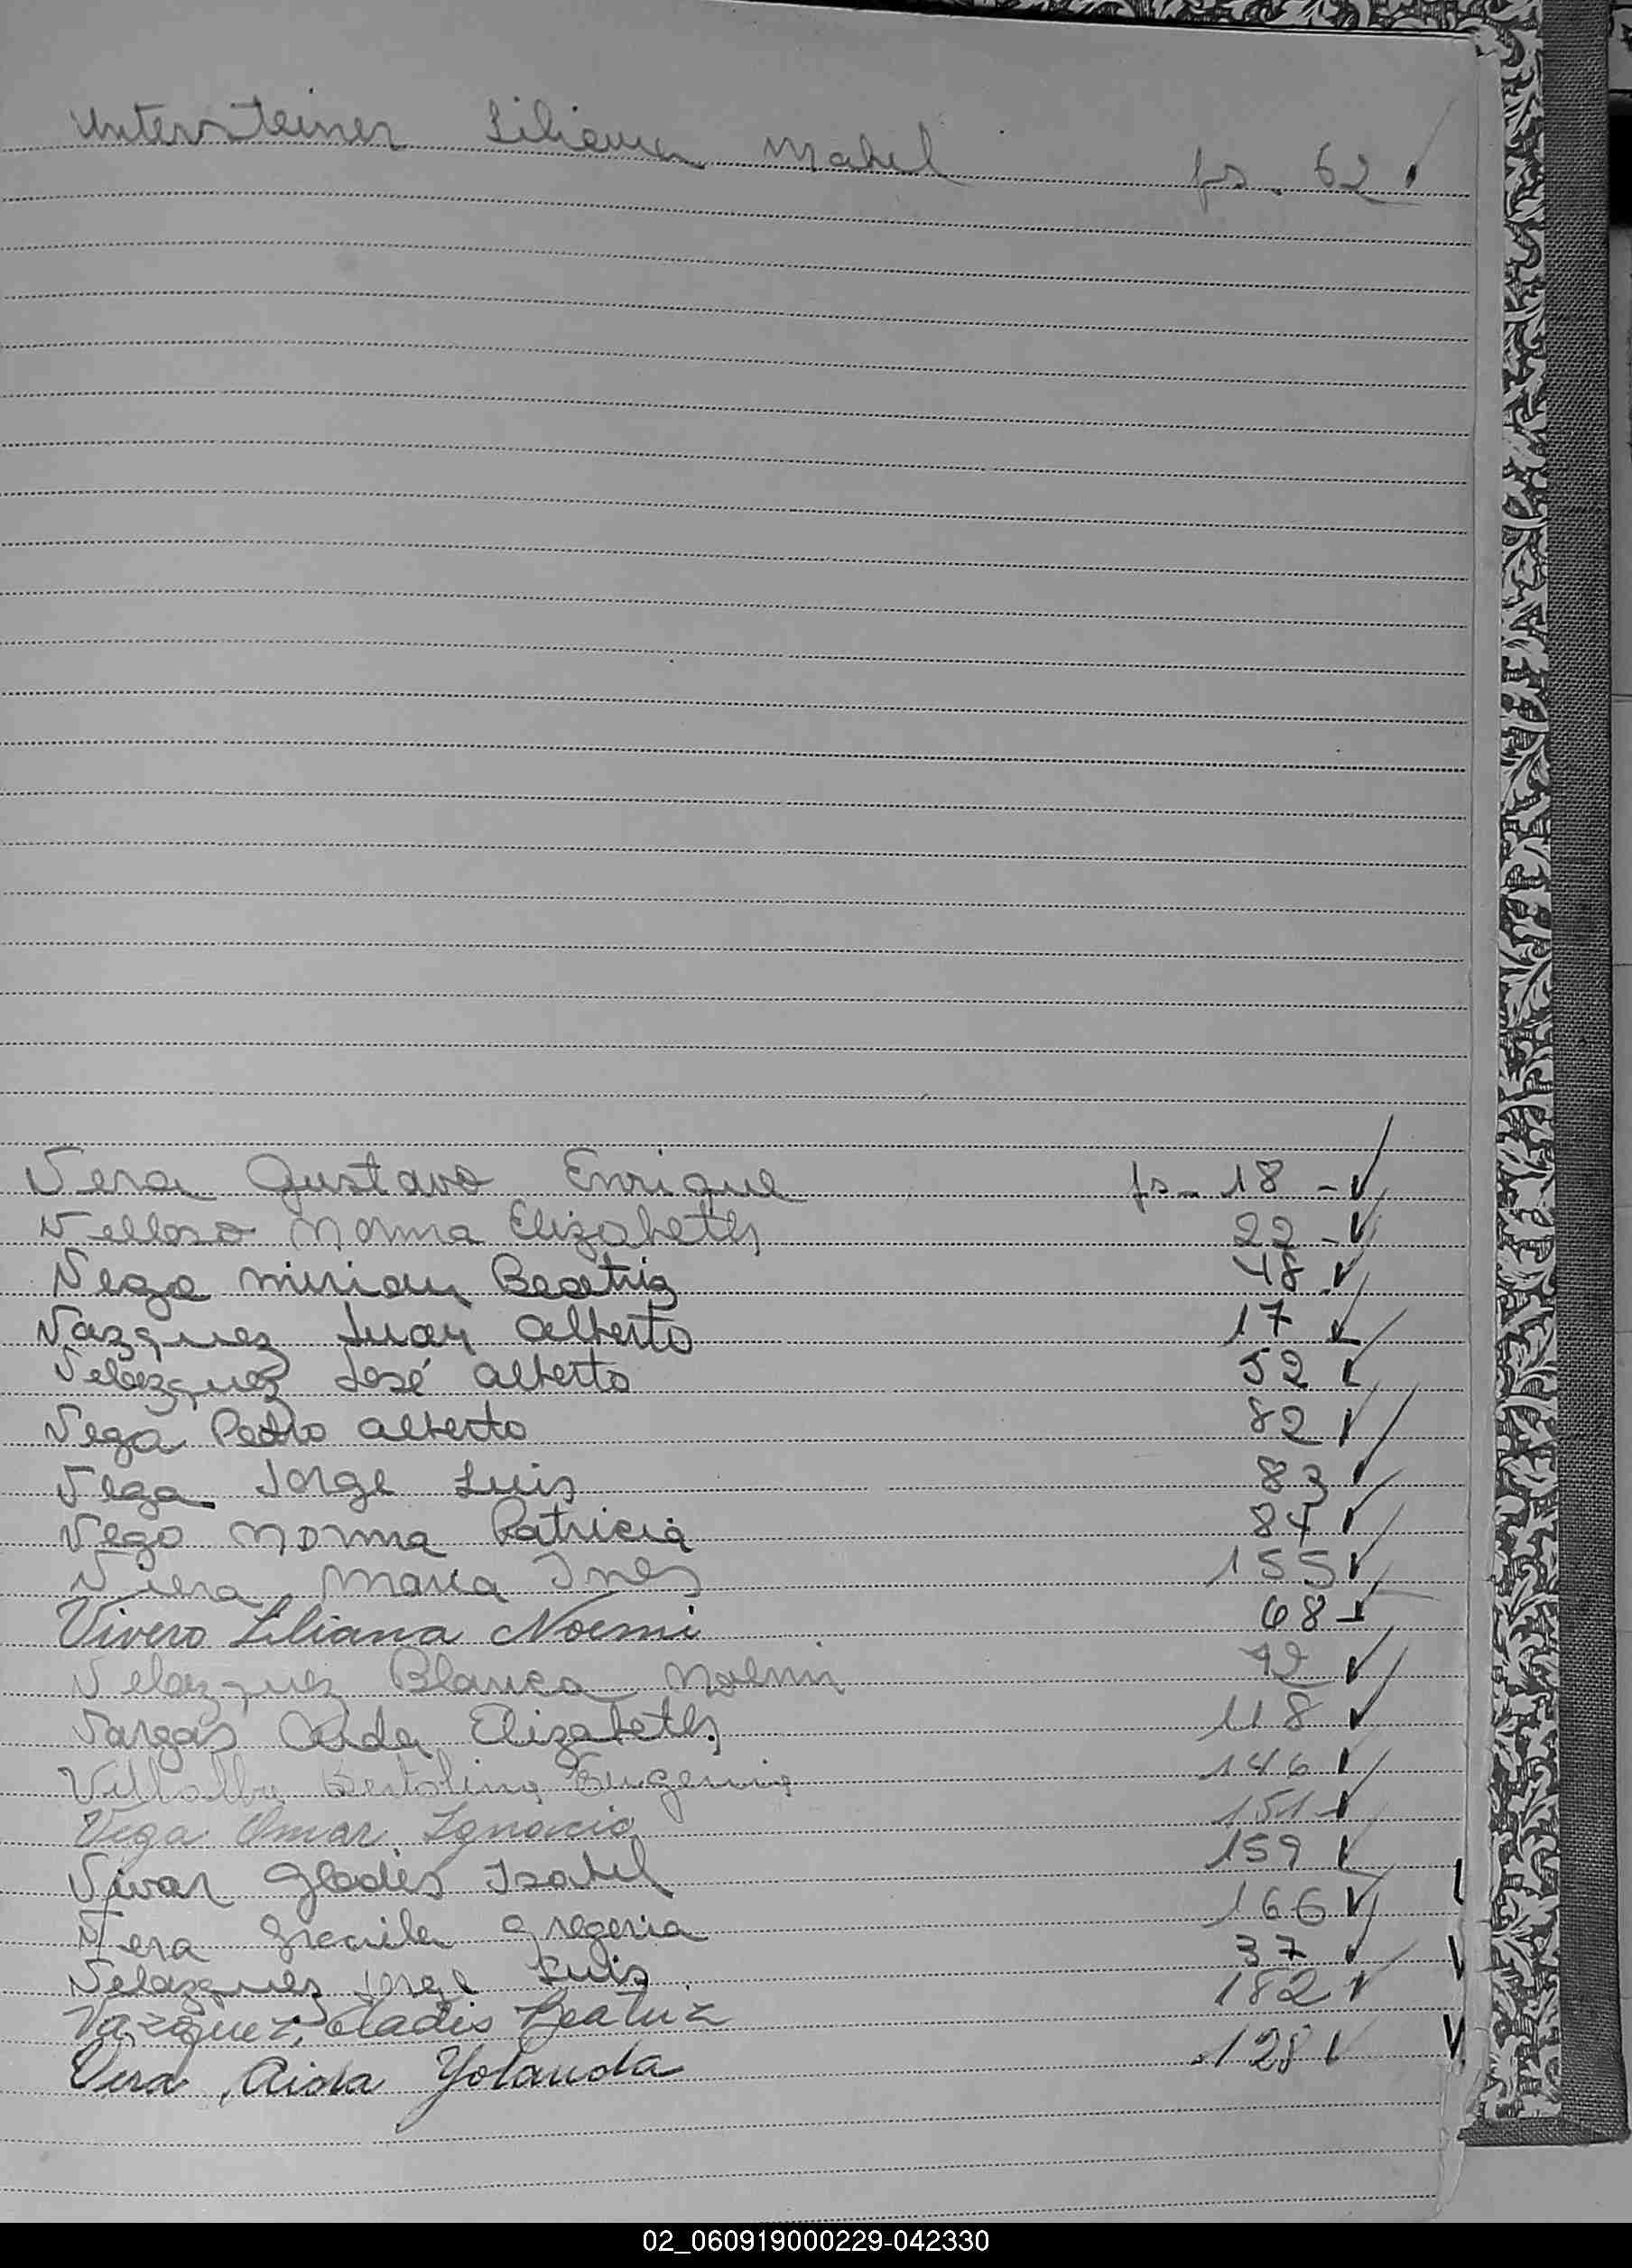 Untersteiner Liliana Mabel fs. 62
Vera Gustavo Enrique fs. 18 -
Velloso Norma Elizabeth 22 -
Vega Miriam Beatriz 48
Vazquez Juan Alberto 17
Velazquez José Alberto 52
Vega Pedro Alberto 82
Vega Jorge Luis 83
Vega Norma Patricia 84
Viera Maria Ines 155
Vivero Liliana Noemi 68
Velazquez Blanca Noemi
Vargas Aida Elizabeth 118
Villalba Bertolina Eugenia 146
Vega Omar Ignacio 151
Vivar Gladis Isabel 159
Vera Graciela Gregoria 166
Velazquez Jorge Luis 37
Vazquez, Gladis Beatriz 182
Vera, Aida Yolanda 128
02_060919000229-042330